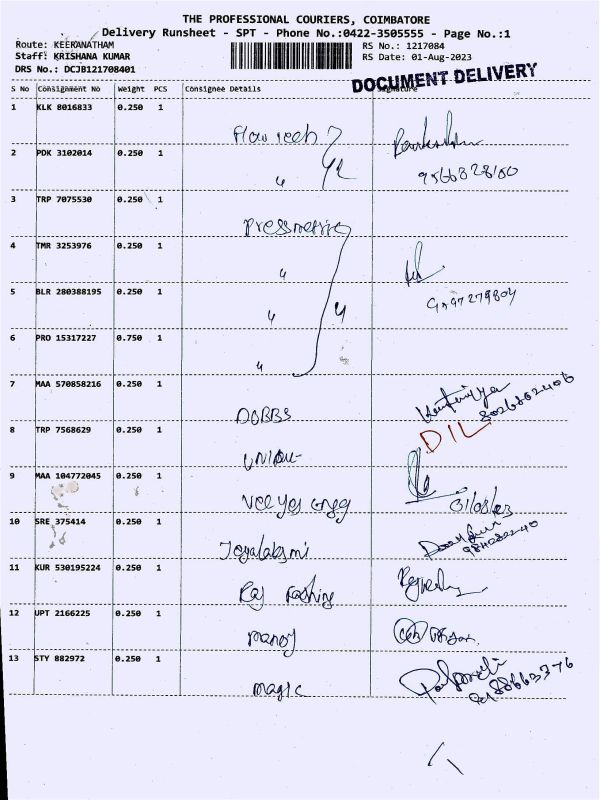 THE PROFESSIONAL COURIERS, COIMBATORE
Delivery Runsheet - SPT - Phone No.:0422-3505555 - Page No.:1
Route: KEERANATHAM RS No.: 1217084
Staff: KRISHANA KUMAR RS Date: 01-Aug-2023
DRS No.: DCJB121708401
DOCUMENT DELIVERY
S No Consignment No Weight PCS Consignee Details Signature
1 KLK 8016833 0.250 1
Flow tech
2 PDK 3102014 0.250 1
3 TRP 7075530 0.250 1
Pressmetric
4 TMR 3253976 0.250 1
5 BLR 280388195 0.250 1
4
6 PRO 15317227 0.750 1
7 MAA 570858216 0.250 1
DOBBS
8 TRP 7568629 0.250 1
DIL
9 MAA 104772045 0.250 1
Vee yes engg
10 SRE 375414 0.250 1
Jeyalaksmi
11 KUR 530195224 0.250 1
Raj Fashing
12 UPT 2166225 0.250 1
manoj
13 STY 882972 0.250 1
magic